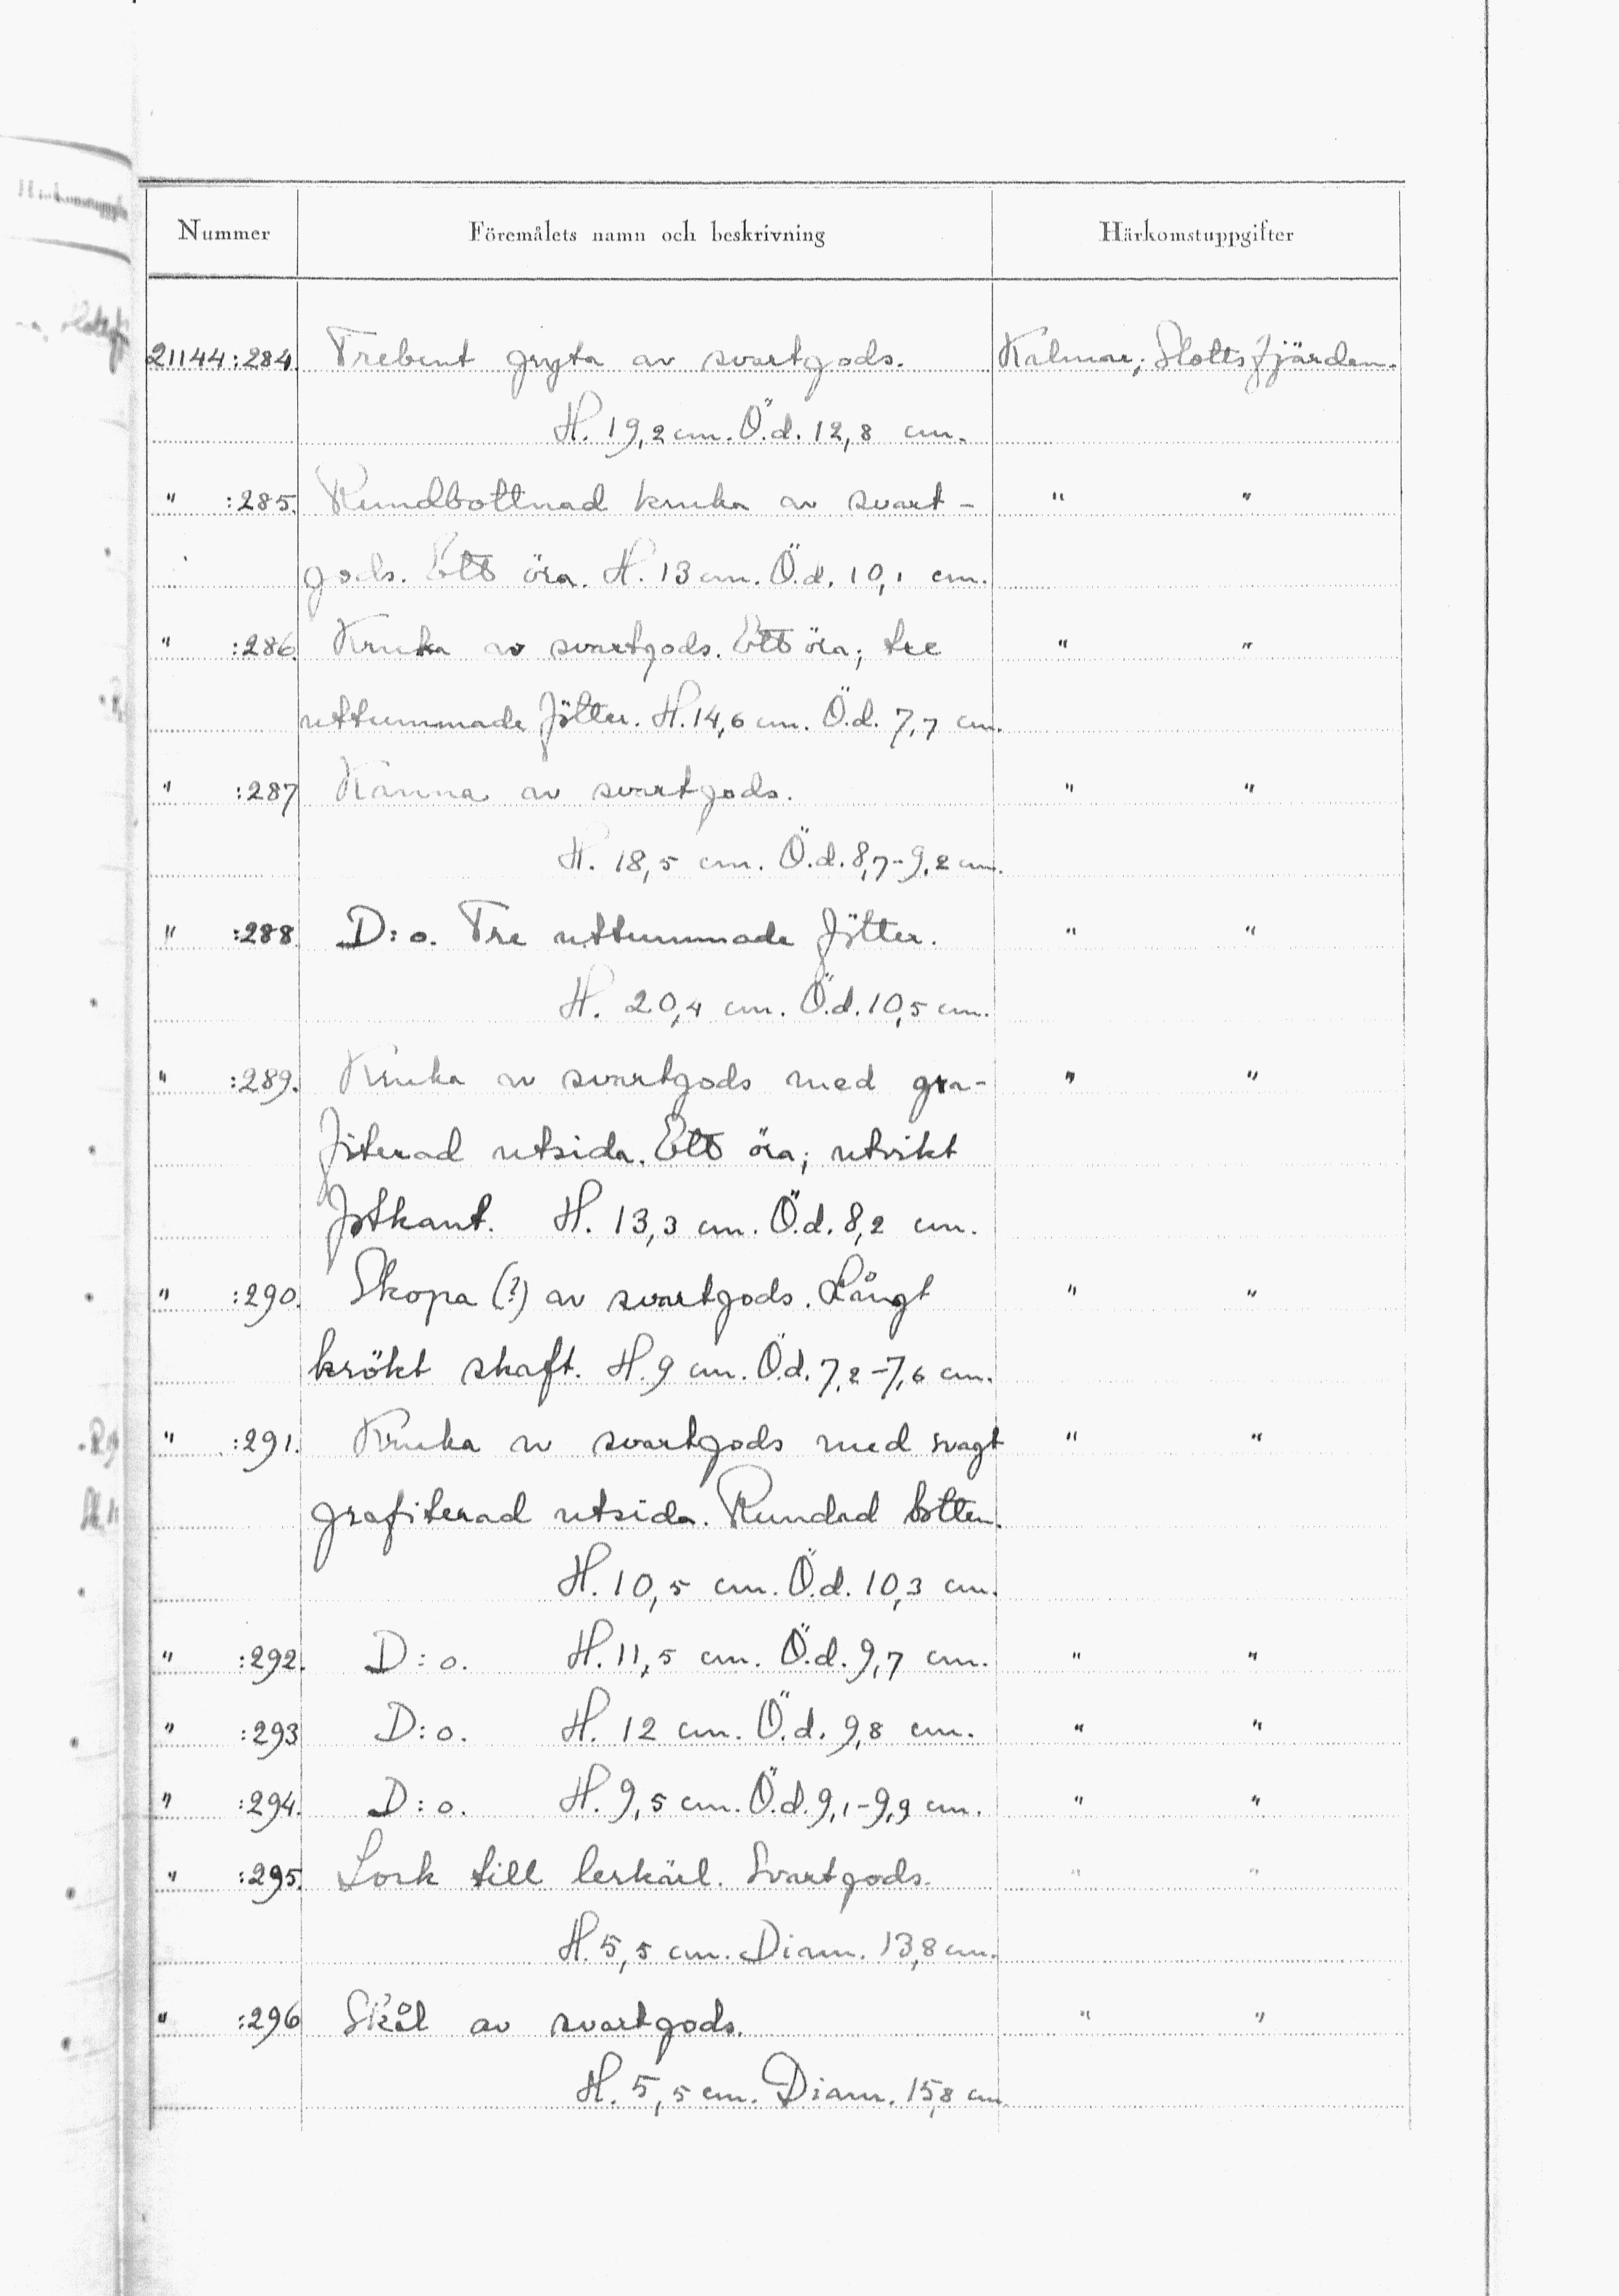 Nummer Föremålets namn och beskrivning Härkomstuppgifter
21144:284. Trebent gryta av svartgods. Kalmar; Slottsfjärden.
H. 19,2 cm. Ö.d. 12,8 cm.
" :285. Rundbottnad kruka av svart- " "
gods. Ett öra. H. 13 cm. Ö.d. 10,1 cm.
" :286. Kruka av svartgods. Ett öra; tre " "
uttummade fötter. H. 14,6 cm. Ö.d. 7,7 cm.
" :287 Kanna av svartgods. " "
H. 18,5 cm. Ö.d. 8,7-9,2 cm.
" :288. D:o. Tre uttummade fötter. " "
H. 20,4 cm. Ö.d. 10,5 cm.
" :289. Kruka av svartgods med gra- " "
fiterad utsida. Ett öra; utvikt
fotkant. H. 13,3 cm. Ö.d. 8,2 cm.
" :290. Skopa (?) av svartgods. Långt " "
krökt skaft. H. 9 cm. Ö.d. 7,2-7,6 cm.
" :291. Kruka av svartgods med svagt " "
grafiterad utsida. Rundad botten.
H. 10,5 cm. Ö.d. 10,3 cm.
" :292. D:o. H. 11,5 cm. Ö.d. 9,7 cm. " "
" :293 D:o. H. 12 cm. Ö.d. 9,8 cm. " "
" :294. D:o. H. 9,5 cm. Ö.d. 9,1-9,9 cm. " "
" :295. Lock till lerkärl. Svartgods. " "
H. 5,5 cm. Diam. 13,8 cm.
" :296 Skål av svartgods. " "
H. 5,5 cm. Diam. 15,8 cm.